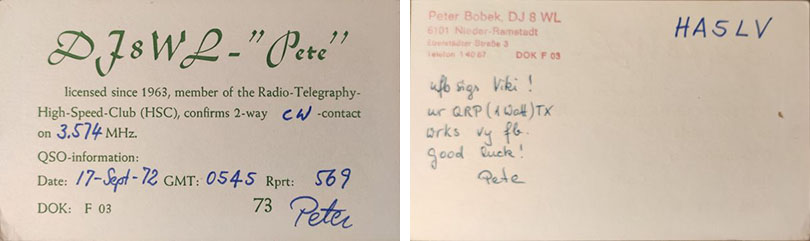 DJ8WL-"Pete"
licensed since 1963, member of the Radio-Telegraphy-
High-Speed-Club (HSC), confirms 2-way CW -contact
on 3.574 MHz.
QSO-information:
Date: 17-Sept-72 GMT: 0545 Rprt: 569
DOK: F 03 73 Peter
Peter Bobek, DJ 8 WL
6101 Nieder-Ramstadt
Eberstädter Straße 3
Telefon 14067 DOK F 03
HA5LV
ufb sigs Viki!
ur QRP (1 Watt) TX
wrks vy fb.
good luck!
Pete